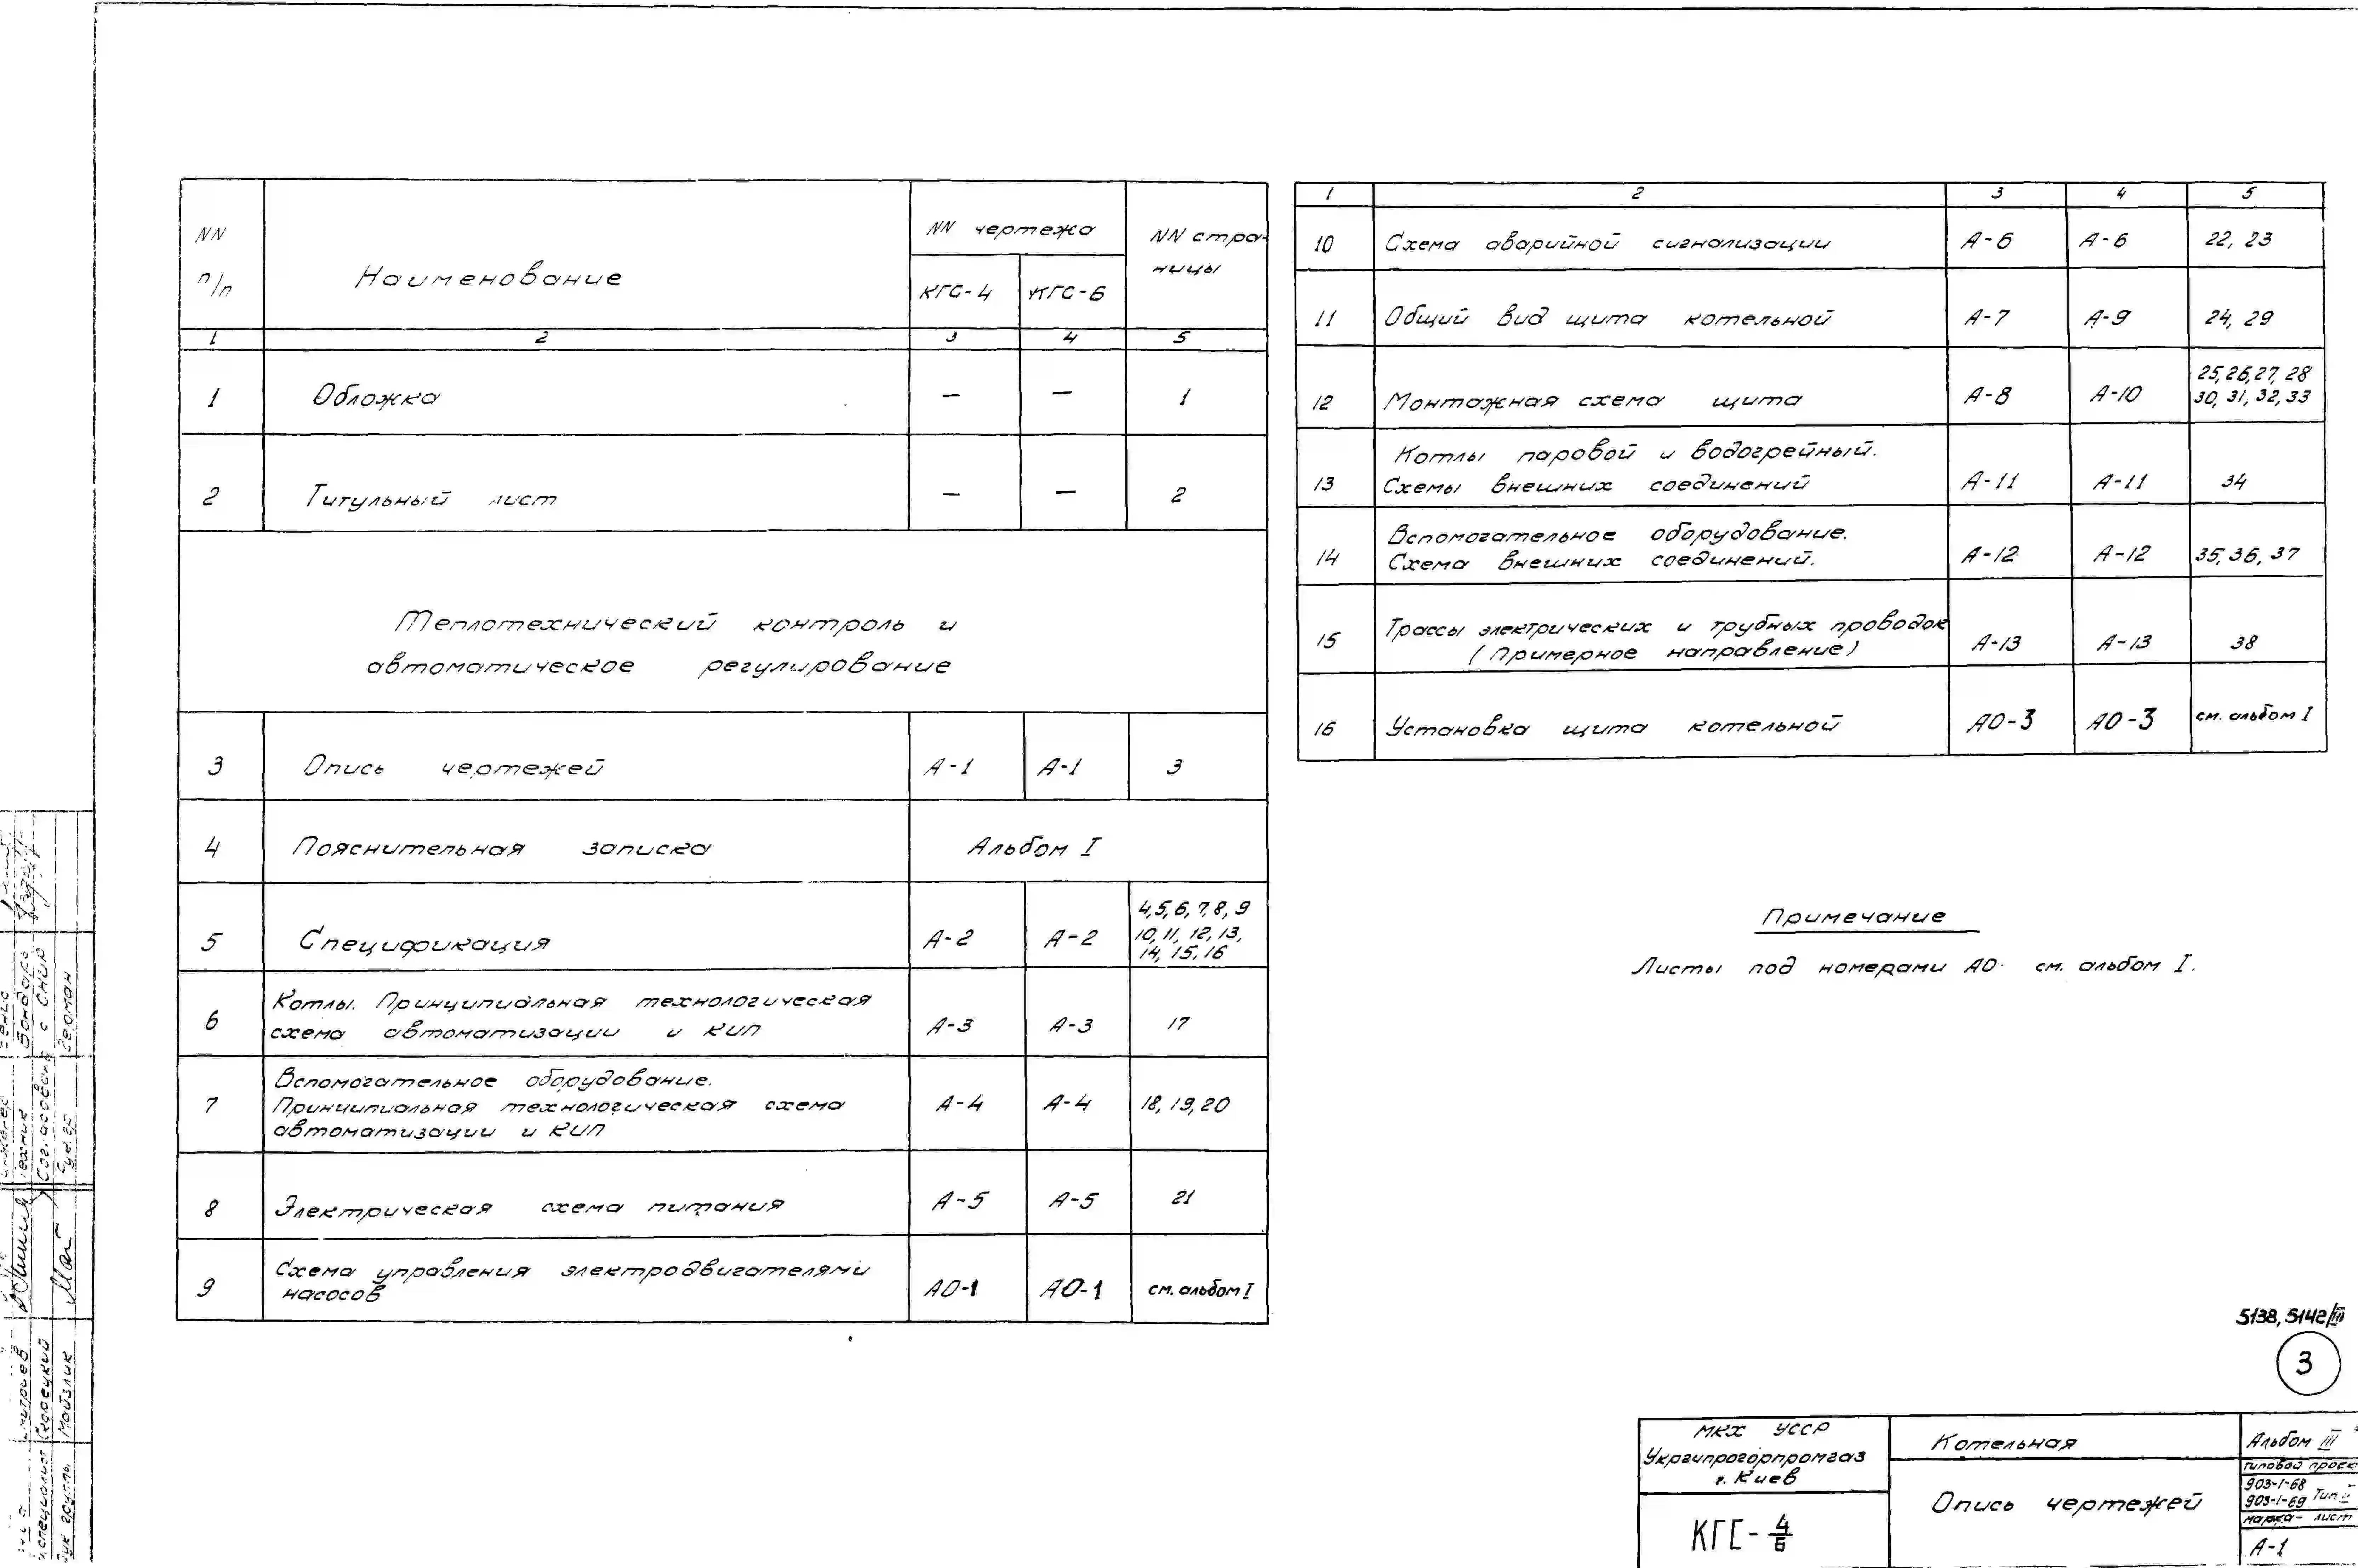 NN п/п Наименование NN чертежа NN стра-
ницы
КГС-4 КГС-6
1 2 3 4 5
1 Обложка — — 1
2 Титульный лист — — 2
Теплотехнический контроль и
автоматическое регулирование
3 Опись чертежей А-1 А-1 3
4 Пояснительная записка Альбом I
5 Спецификация А-2 А-2 4,5,6,7,8,9
10,11,12,13,
14,15,16
6 Котлы. Принципиальная технологическая
схема автоматизации и КИП А-3 А-3 17
7 Вспомогательное оборудование.
Принципиальная технологическая схема А-4 А-4 18,19,20
автоматизации и КИП
8 Электрическая схема питания А-5 А-5 21
9 Схема управления электродвигателями
насосов АО-1 АО-1 см. альбом I
1 2 3 4 5
10 Схема аварийной сигнализации А-6 А-6 22, 23
11 Общий вид щита котельной А-7 А-9 24, 29
12 Монтажная схема щита А-8 А-10 25,26,27, 28
30, 31, 32, 33
13 Котлы паровой и водогрейный.
Схемы внешних соединений А-11 А-11 34
14 Вспомогательное оборудование.
Схема внешних соединений. А-12 А-12 35, 36, 37
15 Трассы электрических и трубных проводок
(Примерное направление) А-13 А-13 38
16 Установка щита котельной АО-3 АО-3 см. альбом I
Примечание
Листы под номерами АО см. альбом I.
5138, 5142/III
3
МКХ УССР
Укргипрогорпромгаз
г. Киев
КГС-4/6
Котельная
Опись чертежей
Альбом III
типовой проект
903-1-68
903-1-69 Тип
марка-лист
А-1
Бондарь
с СНИР
Геоман
Скорецкий
Майзлик